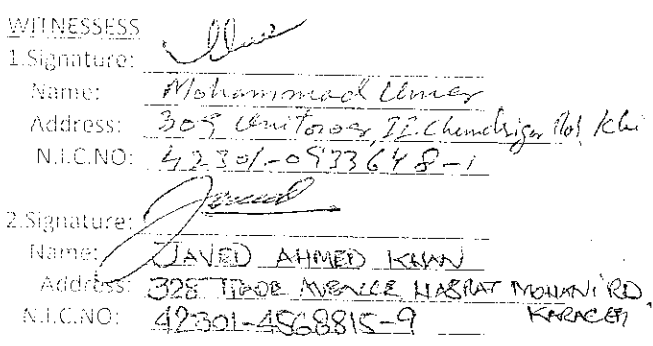 WITNESSESS
1.Signature:
Name: Mohammad Umer
Address: 309 Unitower, I.I. Chundrigar Rd, Khi
N.I.C.NO: 42301-0933648-1
2.Signature: Javed
Name: JAVED AHMED KHAN
Address: 328 TRADE AVENUE HASRAT MOHANI RD.
KARACHI
N.I.C.NO: 42301-4568815-9